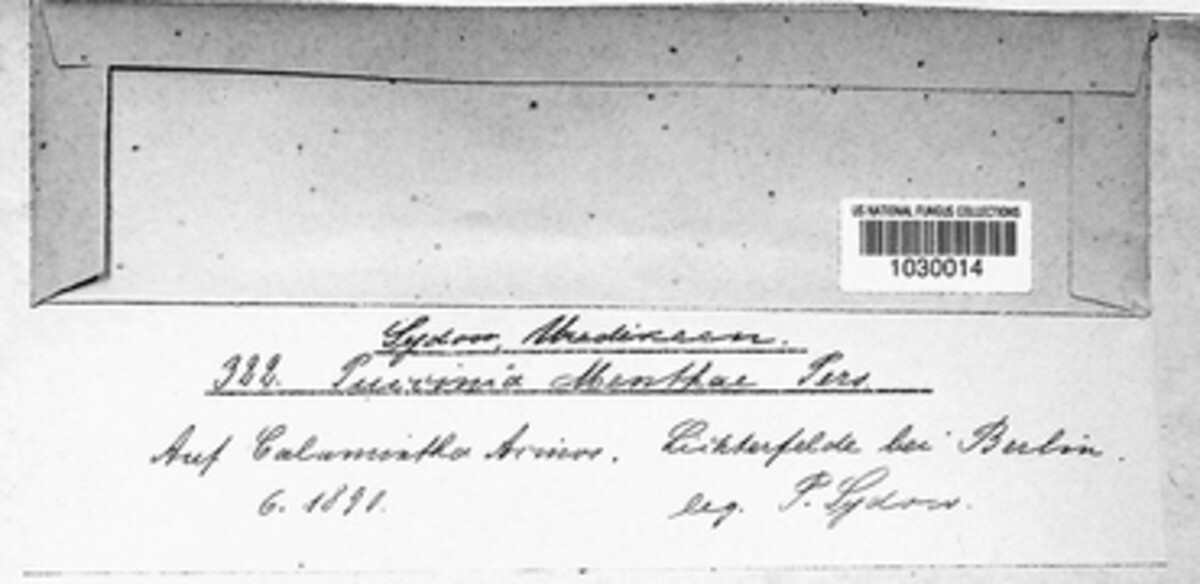 US NATIONAL FUNGUS COLLECTIONS
1030014
Sydow, Uredineen.
322. Puccinia Menthae Pers.
Auf Calamintha Acinos. Lichterfelde bei Berlin.
6. 1890. leg. P. Sydow.